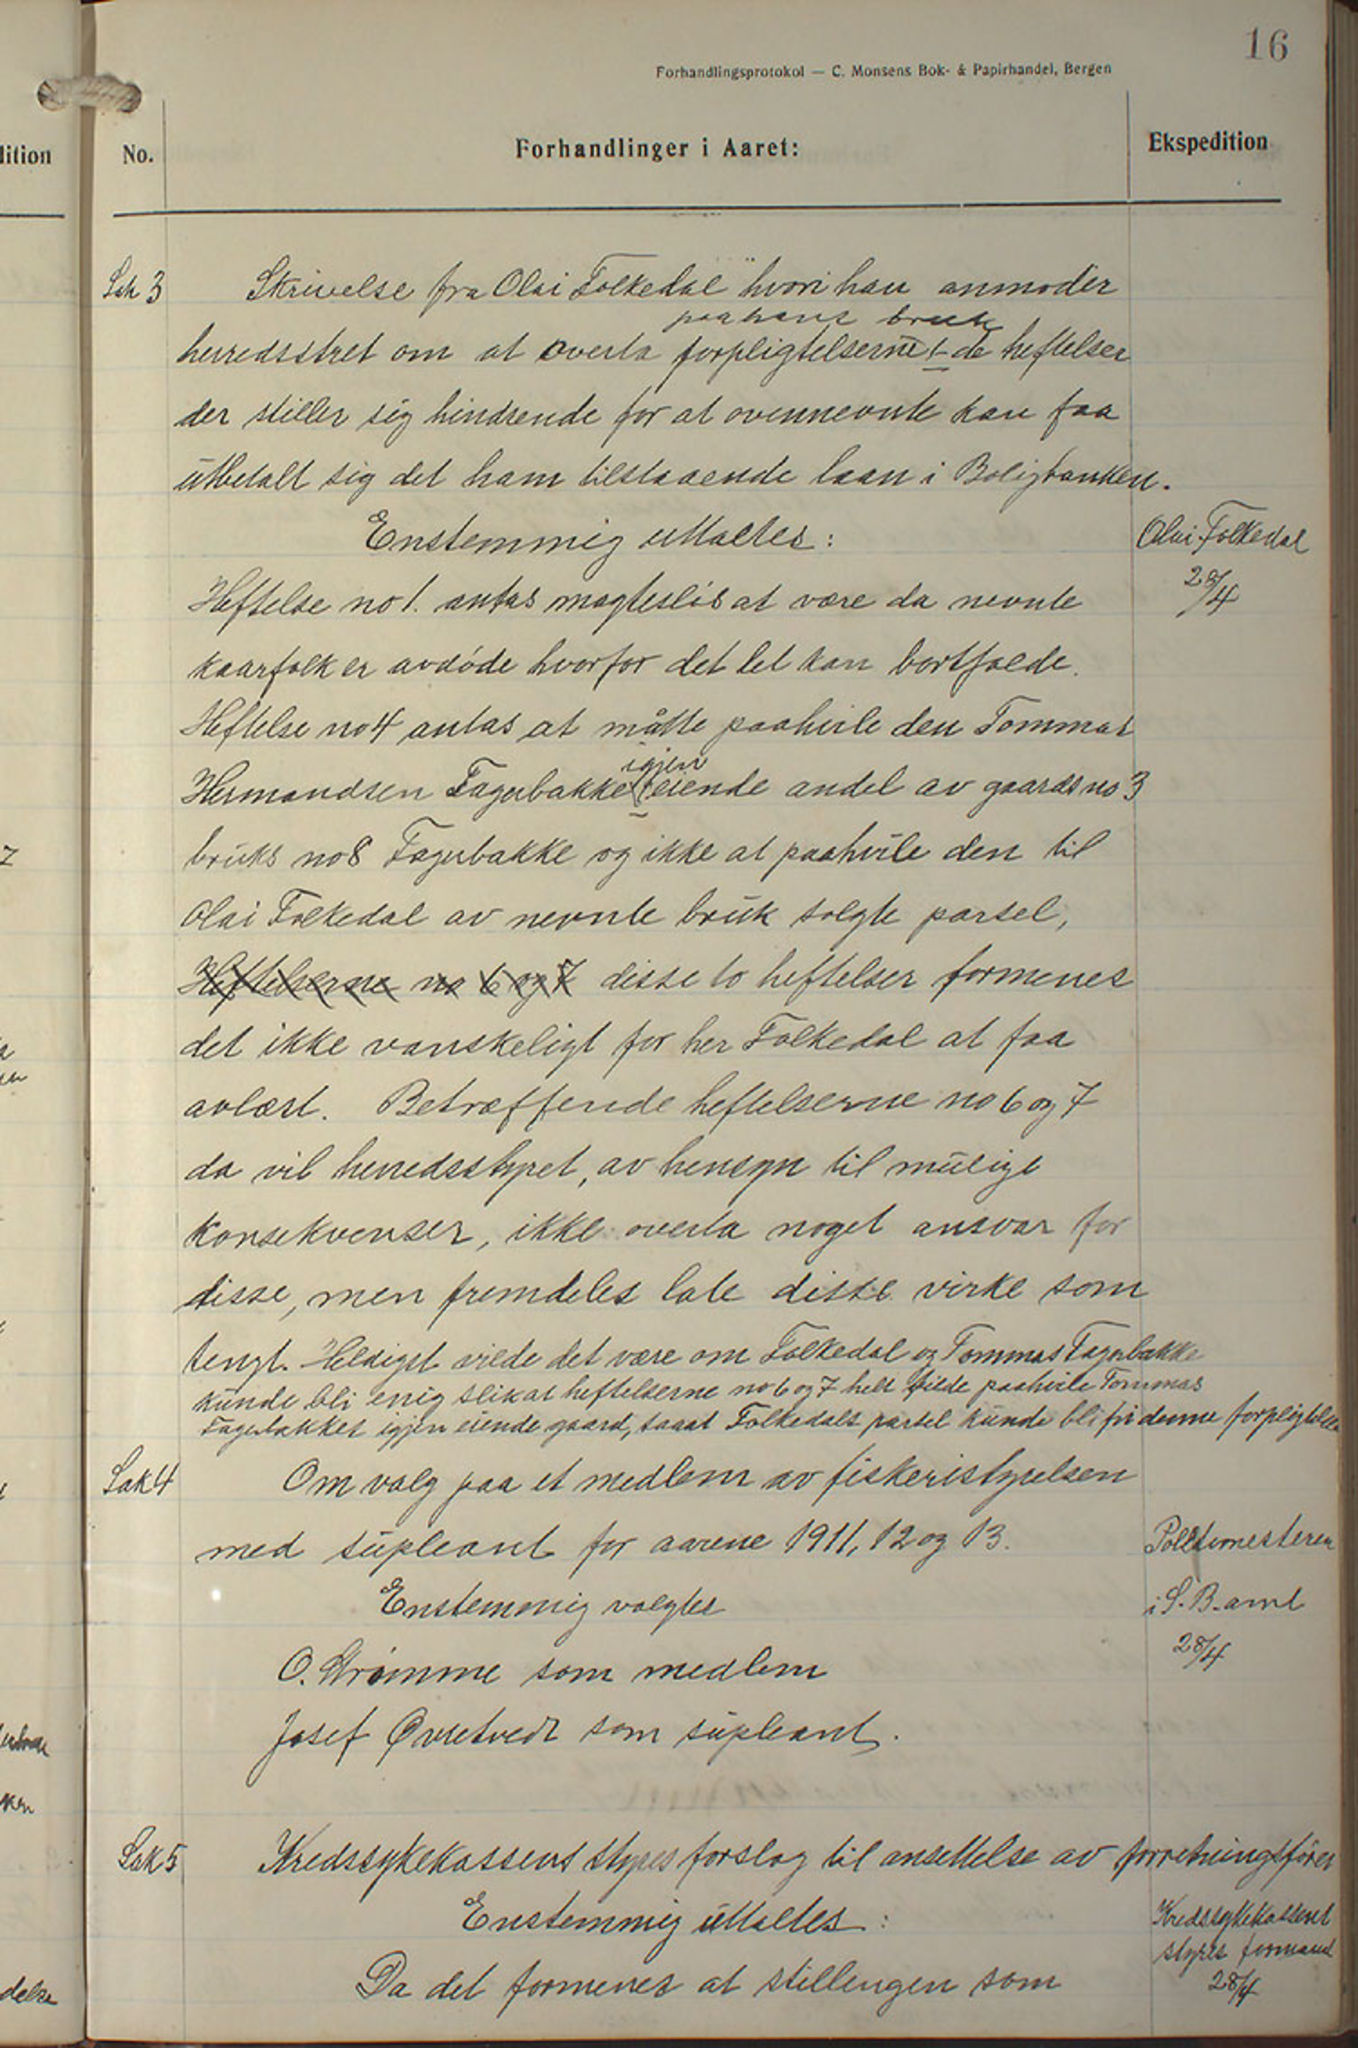 16
Forhandlingsprotokol — C. Monsens Bok- & Papirhandel, Bergen
No.
Forhandlinger i Aaret:
Ekspedition
Sak 3
Skrivelse fra Olai Folkedal hvori han anmoder
paa hans bruk
herredsstret om at overta forpligtelserne de heftelser
der stiller sig hindrende for at ovennevnte kan faa
utbetalt sig det ham tilstaaende laan i Boligbanken.
Enstemmig uttaltes:
Olai Folkedal
28/4
Heftelse no 1. antas magtesløs at være da nevnte
kaarfolk er avdøde hvorfor det let kan bortfalde.
Heftelse no 4 antas at måtte paahvile den Tommas
igjen
Hermandsen Fagerbakke eiende andel av gaards no 3
bruks no 8 Fagerbakke og ikke at paahvile den til
Olai Folkedal av nevnte bruk solgte parsel,
Heftelserne no 6 og 7 disse to heftelser formenes
det ikke vanskeligt for her Folkedal at faa
avlæst. Betræffende heftelserne no 6 og 7
da vil herredsstyret, av hensyn til mulige
konsekvenser, ikke overta noget ansvar for
disse, men fremdeles late disse virke som
tengt. Heldigst vilde det være om Folkedal og Tommas Fagerbakke
kunde bli enig slik at heftelserne no 6 og 7 helt vilde paahvile Tommas
Fagerbakkes igjen eiende gaard, saaat Folkedals parsel kunde bli fri denne forpligtelse
Sak 4
Om valg paa et medlem av fiskeristyrelsen
med supleant for aarene 1911, 12 og 13.
Politimesteren
i S. B. amt
28/4
Enstemmig valgtes
O. Strømme som medlem
Josef Øvretvedt som supleant.
Sak 5
Kredssykekassens styres forslag til ansettelse av forretningsfører
Enstemmig uttaltes:
Kredssykekassens
styres formand
28/4
Da det formenes at stillengen som